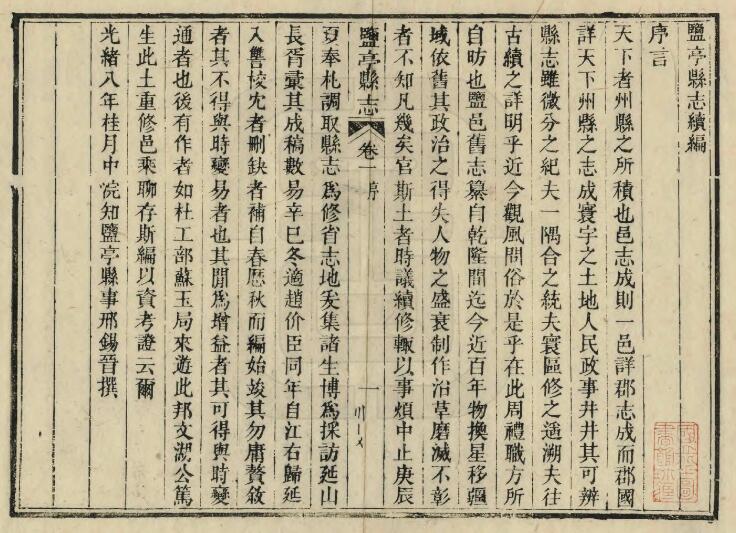 鹽亭縣志續編
序言
天下者州縣之所積也邑志成則一邑詳郡志成而郡國
詳天下州縣之志成寰宇之土地人民政事井井其可辨
縣志雖微分之紀夫一隅合之統夫寰區修之適溯夫往
古續之詳明乎近今觀風問俗於是乎在此周禮職方所
自昉也鹽邑舊志纂自乾隆間迄今近百年物換星移疆
域依舊其政治之得失人物之盛衰制作沿草磨滅不彰
者不知凡幾矣官斯土者時議續修輙以事煩中止庚辰
鹽亭縣志
卷一
序
一
夏奉札調取縣志為修省志地爰集諸生博為採訪延山
長胥彙其成稿數易辛巳冬適趙价臣同年自江右歸延
入讐校冘者刪缺者補自春歷秋而編始竣其勿庸贅敘
者其不得與時變易者也其閒為增益者其可得與時變
通者也後有作者如杜工部蘇玉局來遊此邦文湖公篤
生此土重修邑乘聊存斯編以資考證云爾
光緒八年桂月中浣知鹽亭縣事邢錫晉撰